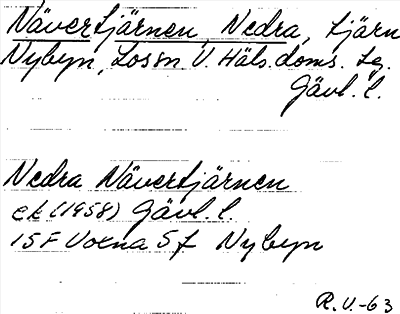 Nävertjärnen, Nedra, tjärn
Nybyn, Lossn V. Häls. doms. Lg.
Gävl. l.
Nedra Nävertjärnen
ek (1958) Gävl. l.
15F Voxna 5f Nybyn
R.V.-63